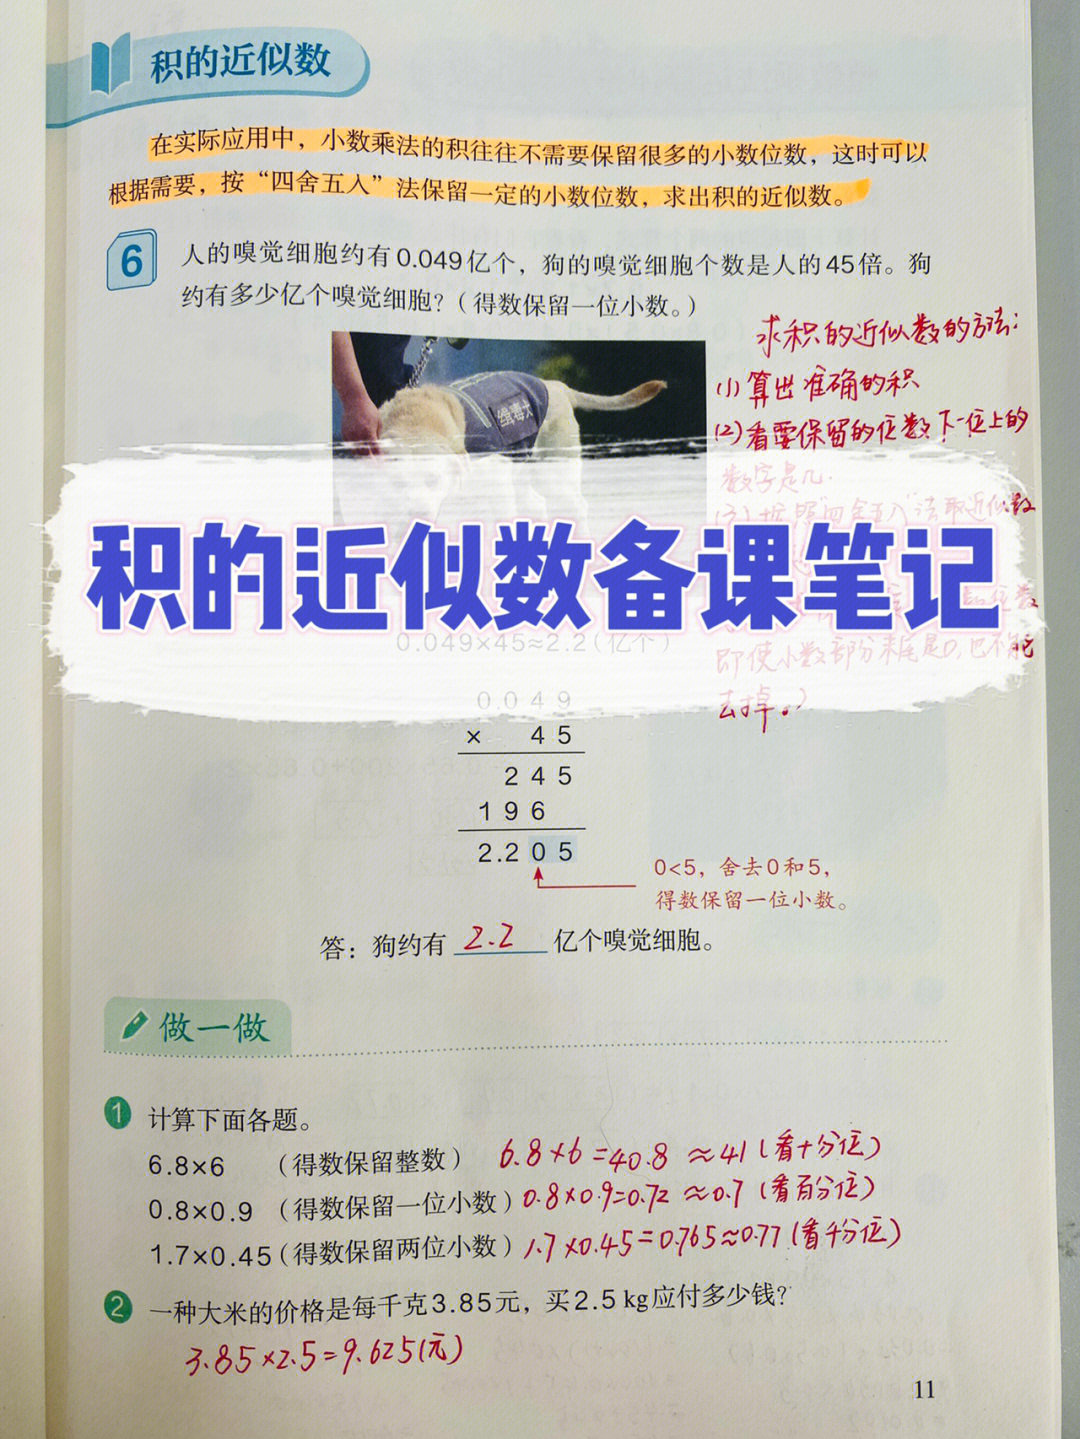 积的近似数
在实际应用中，小数乘法的积往往不需要保留很多的小数位数，这时可以
根据需要，按“四舍五入”法保留一定的小数位数，求出积的近似数。
6 人的嗅觉细胞约有0.049亿个，狗的嗅觉细胞个数是人的45倍。狗
约有多少亿个嗅觉细胞？（得数保留一位小数。）
缉毒犬
求积的近似数的方法：
(1) 算出准确的积
(2) 看要保留的位数下一位上的
数字是几.
(3) 按照“四舍五入”法取近似数
位数
即使小数部分末尾是0，也不能
去掉。)
积的近似数备课笔记
0.049×45≈2.2（亿个）
0.049
× 45
245
196
2.205
0<5，舍去0和5，
得数保留一位小数。
答：狗约有 2.2 亿个嗅觉细胞。
做一做
1 计算下面各题。
6.8×6 （得数保留整数） 6.8×6=40.8 ≈41（看十分位）
0.8×0.9 （得数保留一位小数） 0.8×0.9=0.72 ≈0.7（看百分位）
1.7×0.45（得数保留两位小数） 1.7×0.45=0.765≈0.77（看千分位）
2 一种大米的价格是每千克3.85元，买2.5 kg应付多少钱？
3.85×2.5=9.625(元)
11